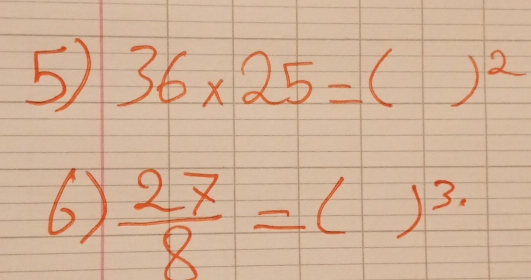 5) 36 × 25 = (  )²
6) 27/8 = (  )³.